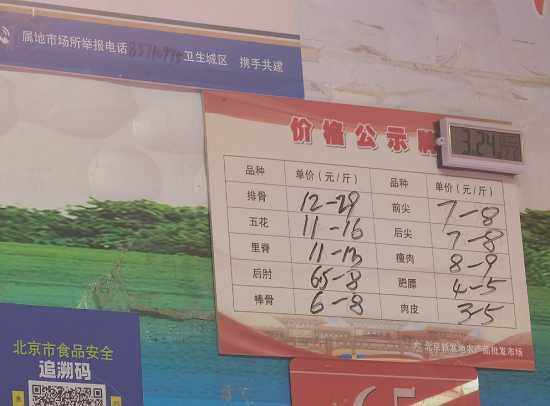 属地市场所举报电话 卫生城区 携手共建
价格公示牌
3:24
品种 单价（元/斤） 品种 单价（元/斤）
排骨 12-29 前尖 7-8
五花 11-16 后尖 7-8
里脊 11-13 瘦肉 8-9
后肘 65-8 肥膘 4-5
棒骨 6-8 肉皮 3-5
北京新发地农产品批发市场
北京市食品安全
追溯码
65